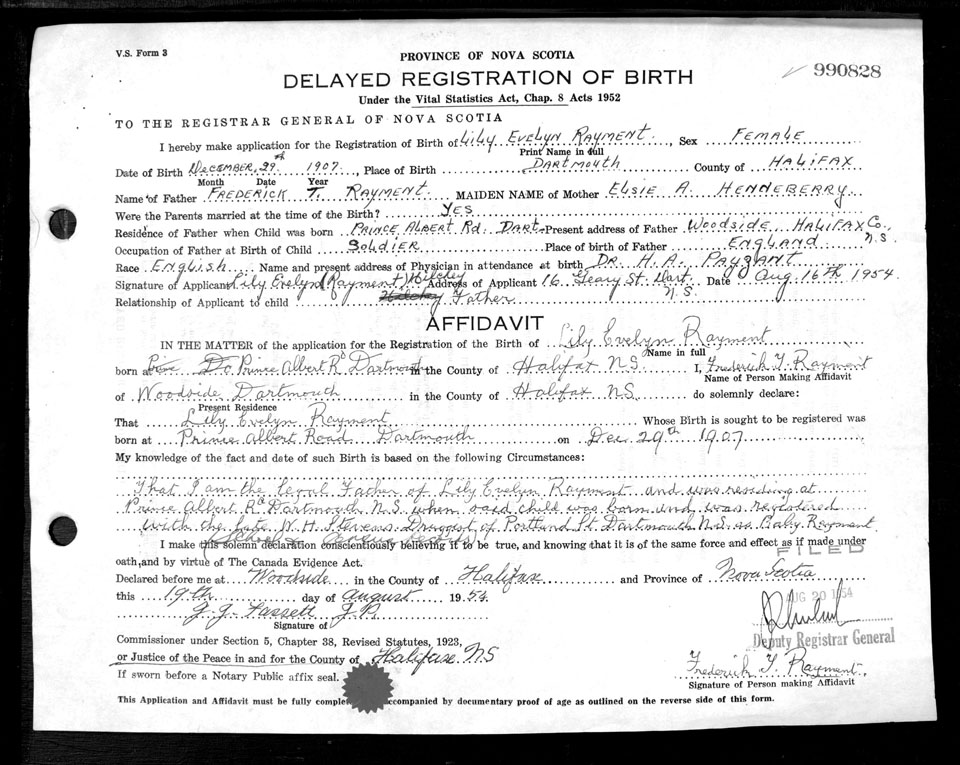 V.S. Form 3
PROVINCE OF NOVA SCOTIA
990828
DELAYED REGISTRATION OF BIRTH
Under the Vital Statistics Act, Chap. 8 Acts 1952
TO THE REGISTRAR GENERAL OF NOVA SCOTIA
I hereby make application for the Registration of Birth of LILY EVELYN RAYMENT. Sex FEMALE
Print Name in full
Date of Birth DECEMBER, 29th 1907. Place of Birth DARTMOUTH County of HALIFAX
Month Date Year
Name of Father FREDERICK T. RAYMENT MAIDEN NAME of Mother ELSIE A. HENNEBERRY
Were the Parents married at the time of the Birth? YES
Residence of Father when Child was born PRINCE ALBERT RD. DART. Present address of Father WOODSIDE HALIFAX Co., N.S.
Occupation of Father at Birth of Child SOLDIER Place of birth of Father ENGLAND
Race ENGLISH Name and present address of Physician in attendance at birth DR. H. A. PAYZANT
Signature of Applicant Lily Evelyn (Rayment) Hilchey Address of Applicant 16 Geary St. Dart. N.S. Date Aug 16th 1954.
Relationship of Applicant to child Father
AFFIDAVIT
IN THE MATTER of the application for the Registration of the Birth of Lily Evelyn Rayment
Name in full
born at Prince Albert Rd Dartmouth in the County of Halifax NS I, Frederick T. Rayment
Name of Person Making Affidavit
of Woodside Dartmouth in the County of Halifax NS do solemnly declare:
Present Residence
That Lily Evelyn Rayment Whose Birth is sought to be registered was
born at Prince Albert Road Dartmouth on Dec 29th 1907
My knowledge of the fact and date of such Birth is based on the following Circumstances:
That I am the legal Father of Lily Evelyn Rayment and was residing at
Prince Albert Rd Dartmouth N.S. when said child was born and was registered
with the late W. H. Stevens Druggist of Portland St. Dartmouth N.S. as Baby Rayment
(School & Census Records)
I make this solemn declaration conscientiously believing it to be true, and knowing that it is of the same force and effect as if made under
oath, and by virtue of The Canada Evidence Act.
FILED
Declared before me at Woodside in the County of Halifax and Province of Nova Scotia
this 19th day of August 1954
AUG 20 1954
J.P.
Signature of
Deputy Registrar General
Commissioner under Section 5, Chapter 38, Revised Statutes, 1923,
or Justice of the Peace in and for the County of Halifax N.S
Frederick T. Rayment
If sworn before a Notary Public affix seal.
Signature of Person making Affidavit
This Application and Affidavit must be fully accompanied by documentary proof of age as outlined on the reverse side of this form.